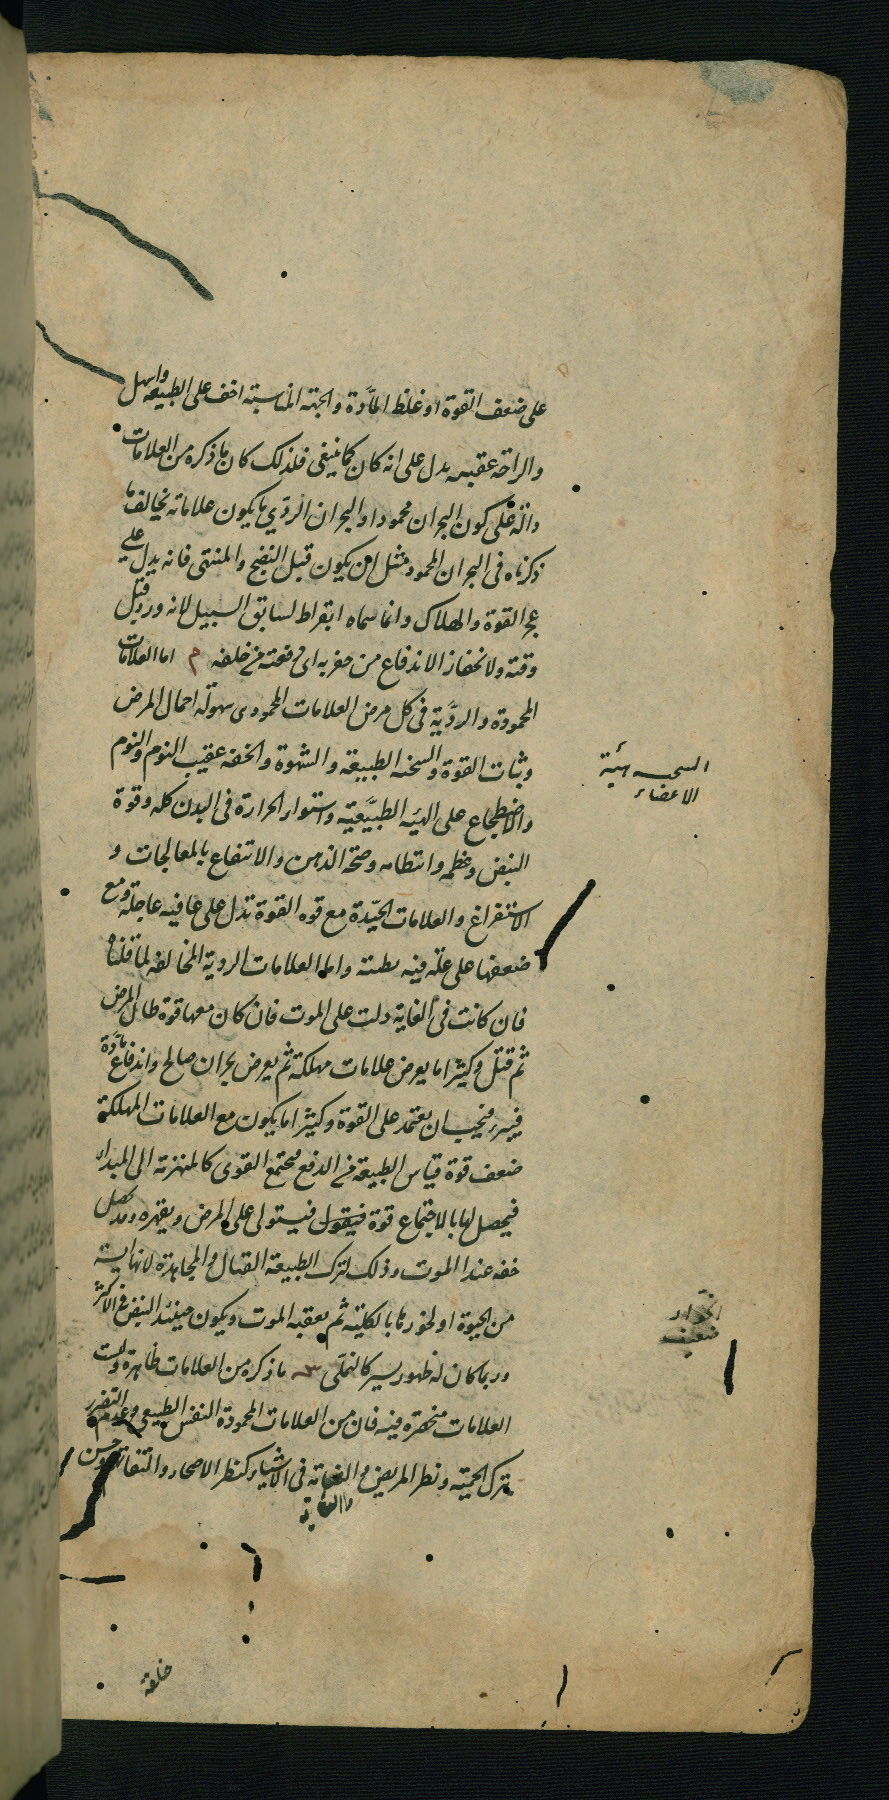 على ضعف القوة او غلظ المادّة والجهة المناسبة اخف على الطبيعة واسهل
والراحة عقيبه يدل على انه كان كما ينبغى فلذلك كان ما ذكره من العلامات
دالة على كون البحران محمودا والبحران الردّي ما يكون علاماته يخالف ما
ذكرناه فى البحران المحمود مثل ان يكون قبل النضج والمنتهى فانه يدل على
عجز القوة والهلاك وانما سماه ابقراط لسابق السبيل لانه ورد قبل
وقته ولانحفاز الاندفاع من حفزه اى دفعته من خلفه م اما العلامات
المحمودة والرديّة فى كل مرض العلامات المحمودى سهولة احمال المرض
وثبات القوة والسحنه الطبيعة والشهوة والخفه عقيب النوم والنوم
والاضطجاع على الهيئه الطبيّعية واستواء الحرارة فى البدن كله وقوة
النبض وعظمه وانتظامه وصحة الذهن والانتفاع بالمعالجات و
الاستفراغ والعلامات الجيّدة مع قوه القوة تدل على عافيه عاجلة ومع
ضعفها على علّه فيه بطيئه واما العلامات الردية المخالفه لما قلناه
فان كانت فى الغاية دلت على الموت فان كان معها قوة طال المرض
ثم قتل وكثيرا ما يعرض علامات مهلكة ثم يعرض بحران صالح واندفاع مادّة
فيبرء فيجب ان يعتمد على القوة وكثيرا ما يكون مع العلامات المهلكة
ضعف قوة الطبيعة فى الدفع فيجتمع القوى كالمنهزمة الى المبداء
فيحصل لها بالاجتماع قوة فيقول فيستولى على المرض ويقهره وقد يحصل
خفه عند الموت وذلك لترك الطبيعة القتال والمجاهدة
من الحيوة او لخورها بالكلية ثم يعقبه الموت ويكون حينئذ النبض فى الاكثر
وربما كان له ظهور يسير كالنملى ما ذكره من العلامات ظاهرة وليست
العلامات منحصرة فيه فان من العلامات المحمودة النفس الطبيعى وعدم التضرر
بترك الحمية ونظر المريض فى الاشياء كنظر الاصحاء وحسن
السحنه هيئة
الاعضاء
الخوار
ضعيف
خلقه